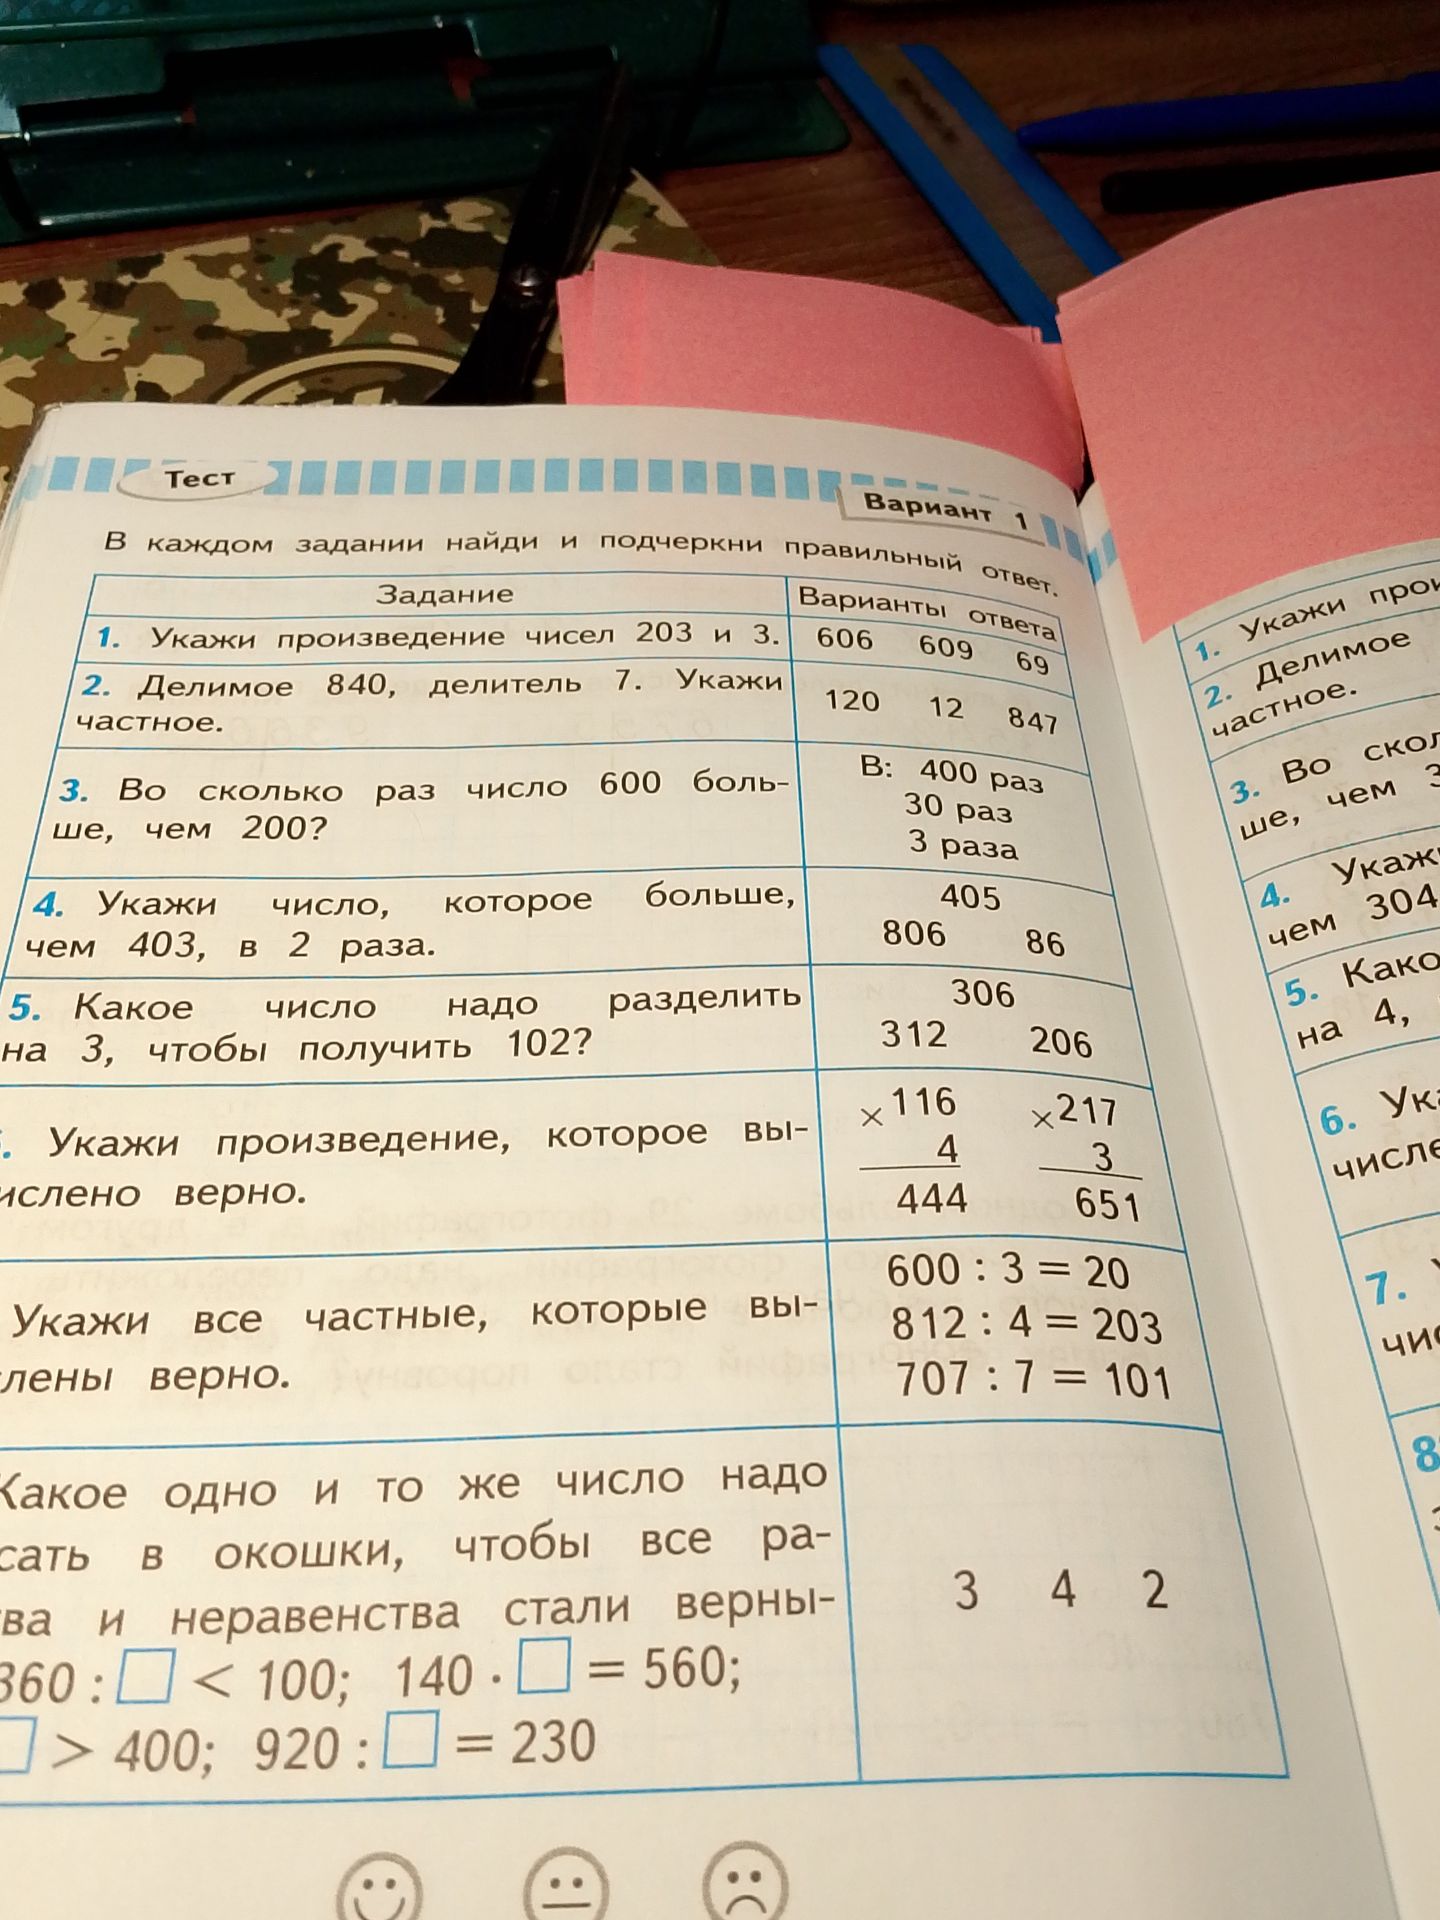 Тест
Вариант 1
В каждом задании найди и подчеркни правильный ответ.
Задание
Варианты ответа
1. Укажи произведение чисел 203 и 3.
606 609 69
2. Делимое 840, делитель 7. Укажи
частное.
120 12 847
3. Во сколько раз число 600 боль-
ше, чем 200?
В: 400 раз
30 раз
3 раза
4. Укажи число, которое больше,
чем 403, в 2 раза.
405
806 86
5. Какое число надо разделить
на 3, чтобы получить 102?
306
312 206
Укажи произведение, которое вы-
числено верно.
×116 ×217
4 3
444 651
Укажи все частные, которые вы-
лены верно.
600 : 3 = 20
812 : 4 = 203
707 : 7 = 101
Какое одно и то же число надо
сать в окошки, чтобы все ра-
ва и неравенства стали верны-
360 : □ < 100; 140 · □ = 560;
□ > 400; 920 : □ = 230
3 4 2
1. Укажи
2. Делимое
частное.
3. Во
ше, чем
4.
чем 304
5.
на 4,
6.
7.
8